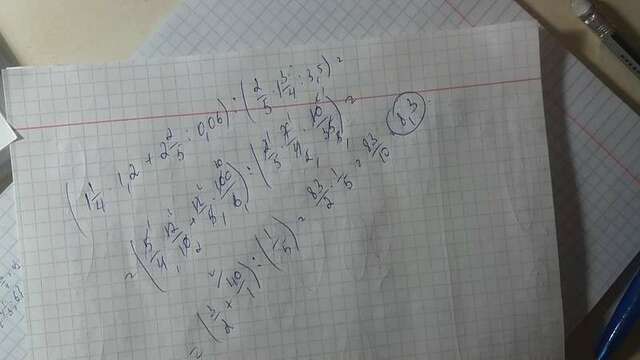 (1 1/4 · 1,2 + 2 2/5 : 0,06) · (2/5 · 1 3/4 : 3,5) =
= (5/4 · 12/10 + 12/5 · 100/6) · (2/5 · 7/4 · 10/35) =
= (3/2 + 40/1) · (1/5) = 83/2 · 1/5 = 83/10 = 8,3